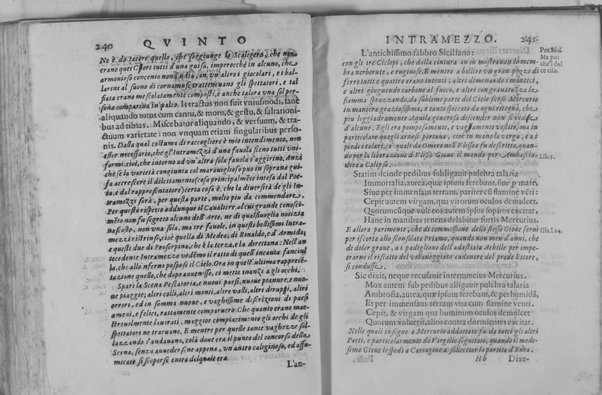 240 QVINTO
Nè è da tacere quello, che soggiunge lo Scaligero, che non
erano que' Cori tutti d'una guisa, imperochè in alcuno, che
armonioso concento non s'udia, in un'altro i giocolari, et bal-
larini al suono di cornamuse trattenevano gli Spettatori, et bē
spesso erano mescolatamente composti, e anche talora una sol per-
sona compariva in palco. Is tractus non fuit vniusmodi, sanè
aliquando totus cum cantu, & motu, & gestu, & saltationi-
bus ad tibias. Misce batur aliquando, & versuum, & tra-
ctuum varietate: non vnquam etiam singularibus perso-
nis. Dalla qual costuma di raccogliere è mio intendimento, non
esser necessario, che gl'Intramezzi d'una favola sieno tutti vni-
formi, cioè, che intorno ad vn'altra sola favola s'aggirino, Anzi
che se la varietà congiunta col maraviglioso può in soprana gui-
sa accrescere il diletto
certa cosa è, che la diversità de gli In-
tramezzi farà, per questa parte, molto più da commendare.
Per questo rispetto adunque il Cavaliere, al cui grande conosci-
mēto non fu segreto alcuno dell'Arte, ne di qual si voglia notizia
nascosto, non vna sola, ma tre favole, in questi bellissimi Intra-
mezzi ristrinse, cioè quella di Medea, di Rinaldo, e d'Armida,
e questi due di Proserpina, che è la terza, e la direttana: Nell'an
tecedente Intramezzo vedēmo il ratto di quell'incauta fanciul
la, che allo inferno pospose il Cielo. Ora in quest'ultimo rappresē-
tazione quello, che dopo avenisse, ci mette inanzi a gli occhi.
Sparì la Scena Pescatoria, e nuovi paesi, nuove pianure, e nuo
ve piagge, altri colli, altri monti, altre valli, altri dirupi, altri
errori, ed in somma nuove, e vaghissime descrizioni di paesi
ameni, e felici, rattamente comparvero. Che quanto erano mae-
strevolmente lavorati, maggior compiacimento gli occhi de gli
spettatori ne traevano. E mentre per quelle tante vaghezze sol-
lazzando s'andavano, colà dove era il punto del concorso della
Scena, senza avvedersene appena, vn antro caliginoso, ed affu-
micato si scopersi entro del quale era
L'an-
INTRAMEZZO. 241
L'antichissimo fabbro Siciliano:
con gli tre Ciclopi, che dalla cintura in su mirvansi
nerboruti, e rugginosi, E mentre a bollire vn gran pezzo di
ferro tutti e quattro erano intenti; altri dimenando i mantici,
e altri giugnendo carbone al fuoco, e altri con granatuzza la
fiamma spruzzando, da sublime parte del Cielo scese Mercurio
in maniera graziosissima, e tanto spedita ad ogni intoppo, che
più leggiadramente Aquila generosa descender non si vede
d'alcuno, Egli era pomposamente, e vagamente vestito, ma in
particolare avea le ale al capo, et in mano la verga, e i
piedi talari, co' quali da Omero nell'Ulissea fu descritto, quan-
do per la liberazione di Ulisse Giove il mandò per Ambascia-
dore a Calipso.
Statim deinde pedibus subligauit pulchra talaria
Immortalia, aurea, quæ ipsum ferebant, siue p mare,
Siue per immensam terram pariter et flamine venti:
Cepit autem virgam, qua virorum oculos demulcet:
Quorumcunque vult eos autem ipsos sopitos excitat,
Hanc in manibus tenens volabat fortis Mercurius.
E allora parimente, che di commessione dello stesso Giove servì
per iscorta allo sconsolato Priamo, quando non men d'anni, che
di dolor grave, a i padiglioni dell'adastato Achille per impe-
trarne il riscatto del villaneggiato cadavero del prode Ettore,
si condusse.
Sic dixit, neque recusauit Internuncius Mercurius.
Mox autem sub pedibus alligauit pulchra talaria
Ambrosia, aurea, quæ ipsum ferebant, & per humidā,
Et per immensam terram vna cum flamine venti:
Cepit, & virgam qua hominum oculos demulcet
Quorum voluerit, alios contra dormientes excitat.
Nelle quali insegne a Mercurio addottate fu da tutti gli altri
Poeti, e particolarmente da Virgilio seguitato, quando il mede-
simo Giove lo spedì a Cartagine a sollecitar la partita d'Enea.
Hh Dixe-
Lib. 5.
Lib. 24.